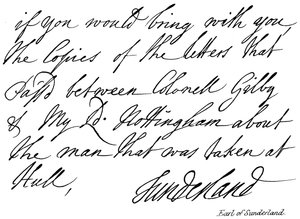 if you would bring with you,
the Copies of the letters that
Pass'd between Colonell Gilby
& My Ld. Nottingham about
the man that was taken at
Hull,
Sunderland
Earl of Sunderland